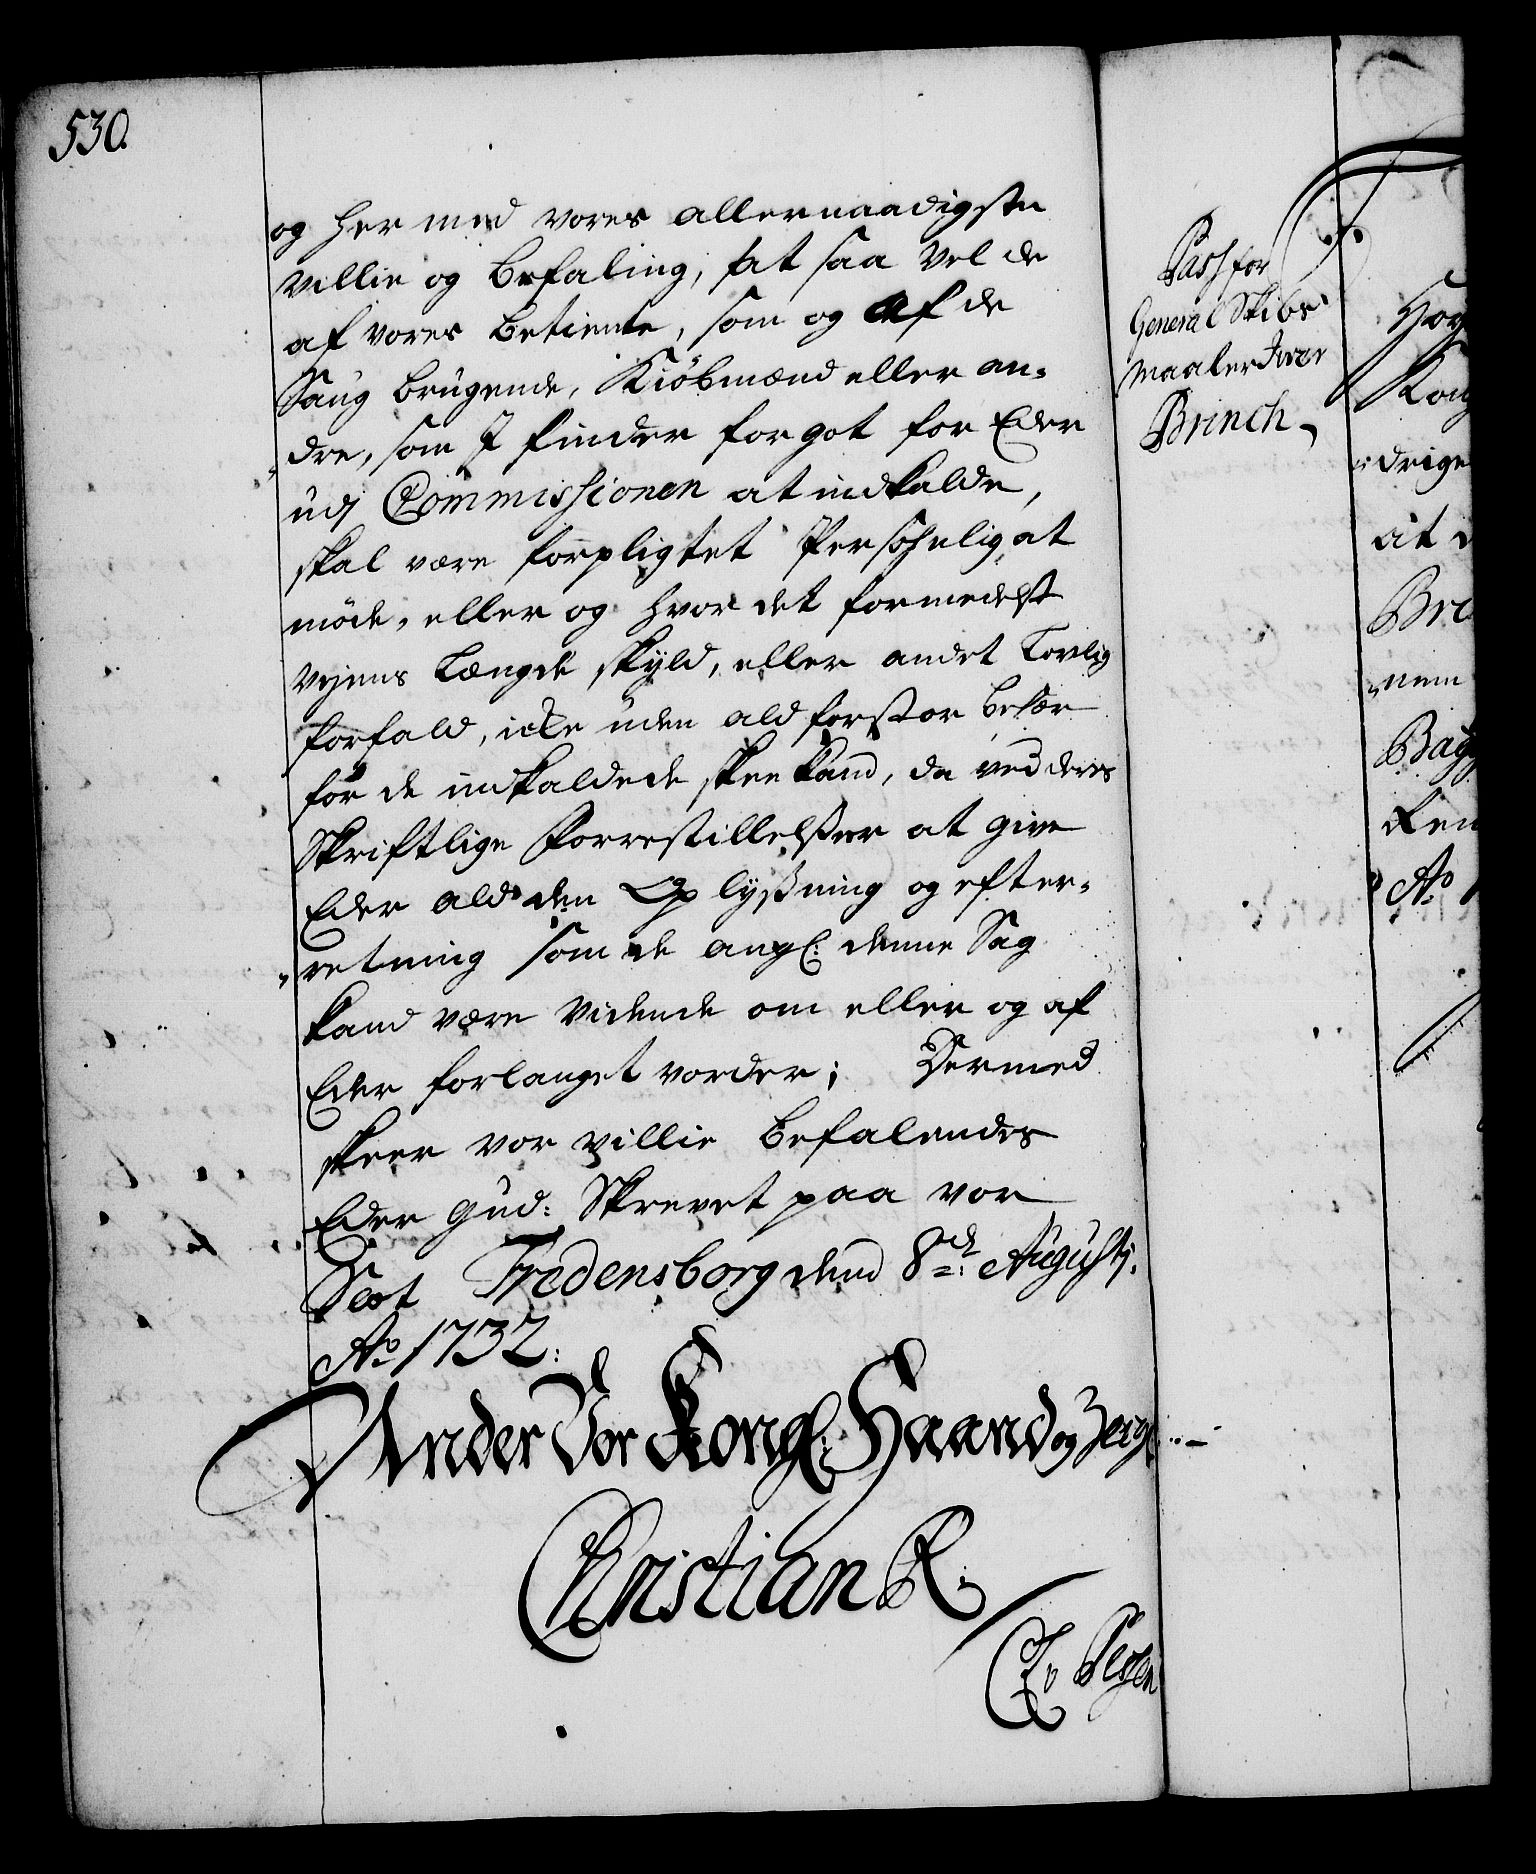 530.
og her med vores allernaadigste
villie og befaling, at saa vel de
af vores betiente, som og af de
Saug brugende, Kiöbmænd eller an-
dre, som I finder for got for Eder
udj Commissionen at indkalde,
skal være forpligtet Personlig at
möde, eller og hvor det formedelst
Vejens Længde skyld, eller andet Lovlig
forfald, icke uden ald for stor besær
for de indkaldede skee kand, da ved deres
Skriftlige Forrestillelsser at give
Eder ald den Oplysning og efter-
retning som de angl: denne Sag
kand være vidende om eller og af
Eder forlanget vorder; Dermed
skeer vor villie befalendes
Eder Gud: Skrevet paa vor
Slot Fredensborg dend 8de Augustj.
Ao 1732.
Under Vor Kongl: Haand og
Christian R.
Pass for
General Skibs
maaler Iver
Brinch
drige
at
Bre
nem
Ao